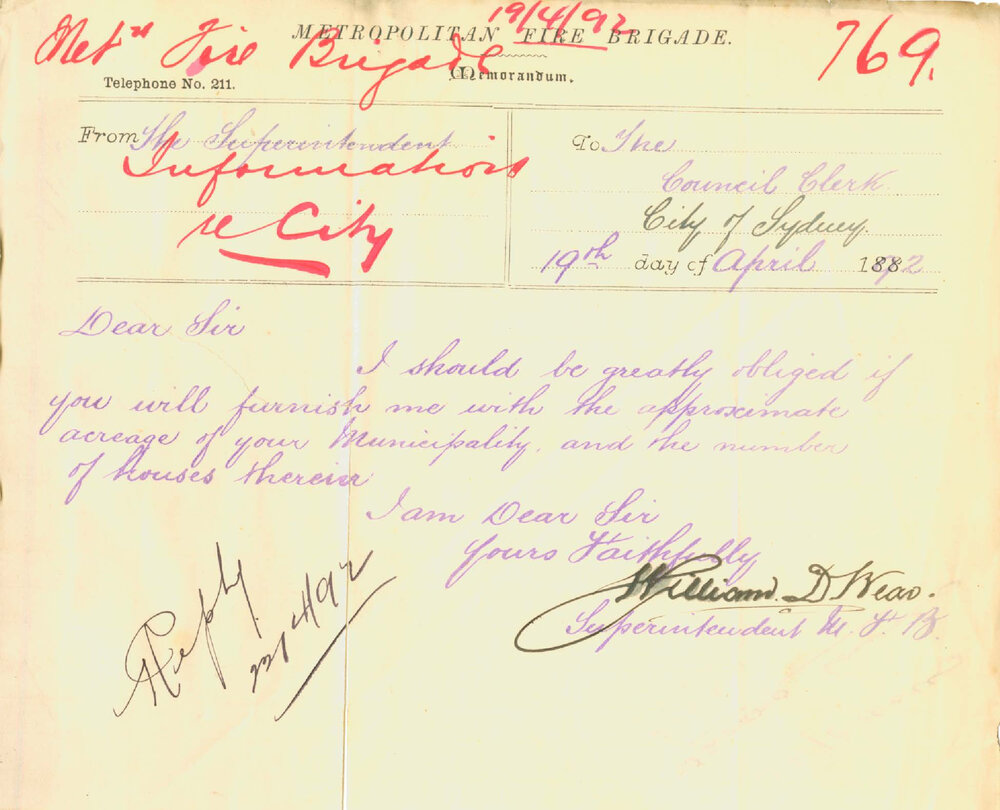 19/4/92
METROPOLITAN FIRE BRIGADE.
Metn Fire Brigade
769.
Memorandum.
Telephone No. 211.
From The Superintendent
Information
re City
To The
Council Clerk
City of Sydney.
19th day of April 1892
Dear Sir
I should be greatly obliged if
you will furnish me with the approximate
acreage of your Municipality, and the number
of houses therein
I am Dear Sir
Yours Faithfully
William D Bear.
Superintendent M. F. B.
Reply
21/4/92